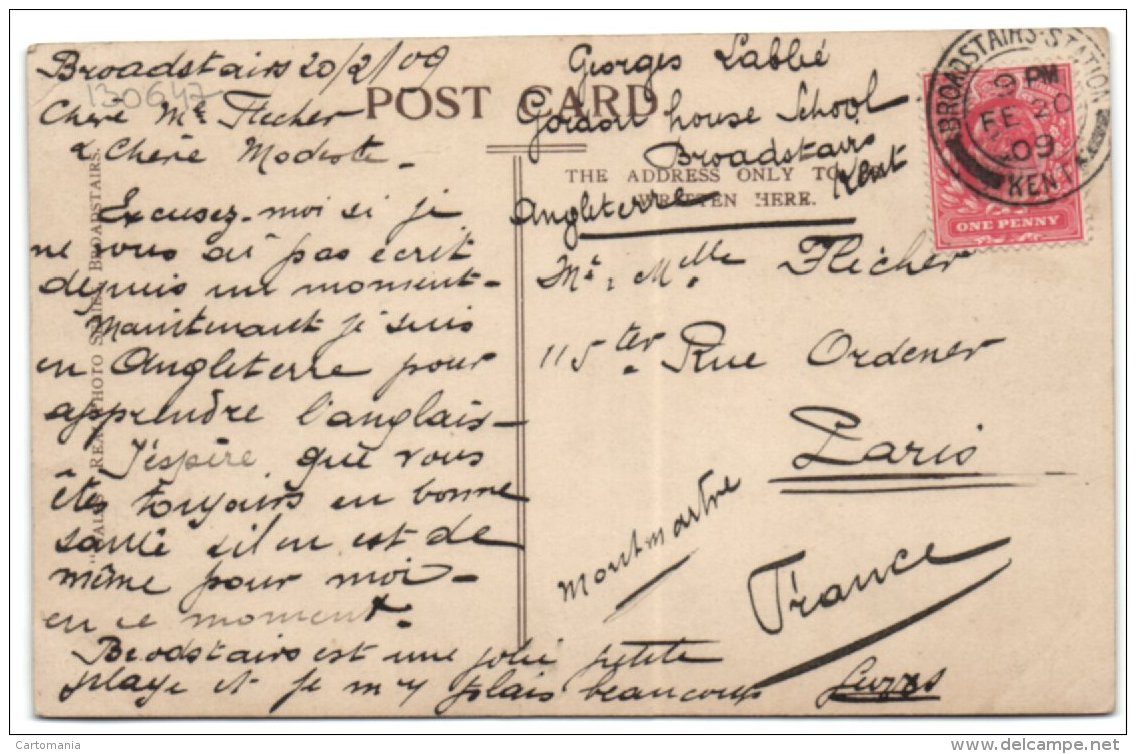 Broadstairs 20/2/09
130647
Chère Me Flecher
& Chère Modeste -
Excusez-moi si je
ne vous ai pas écrit
depuis un moment -
Maintenant je suis
en Angleterre pour
apprendre l'anglais -
- J'espère que vous
êtes toujours en bonne
santé il en est de
même pour moi -
en ce moment.
Brodstairs est une jolie petite
plage et je m'y plais beaucoup
POST CARD
THE ADDRESS ONLY TO
WRITTEN HERE.
Georges Labbé
Gordon house School
Broadstairs
Kent
Angleterre
Me. Melle Flécher
115 ter Rue Ordener
Paris
Montmartre
France
BROADSTAIRS STATION
9 PM
FE 20
09
KENT
ONE PENNY
REAL PHOTO SERIES BROADSTAIRS.
Cartomania
delcampe.net